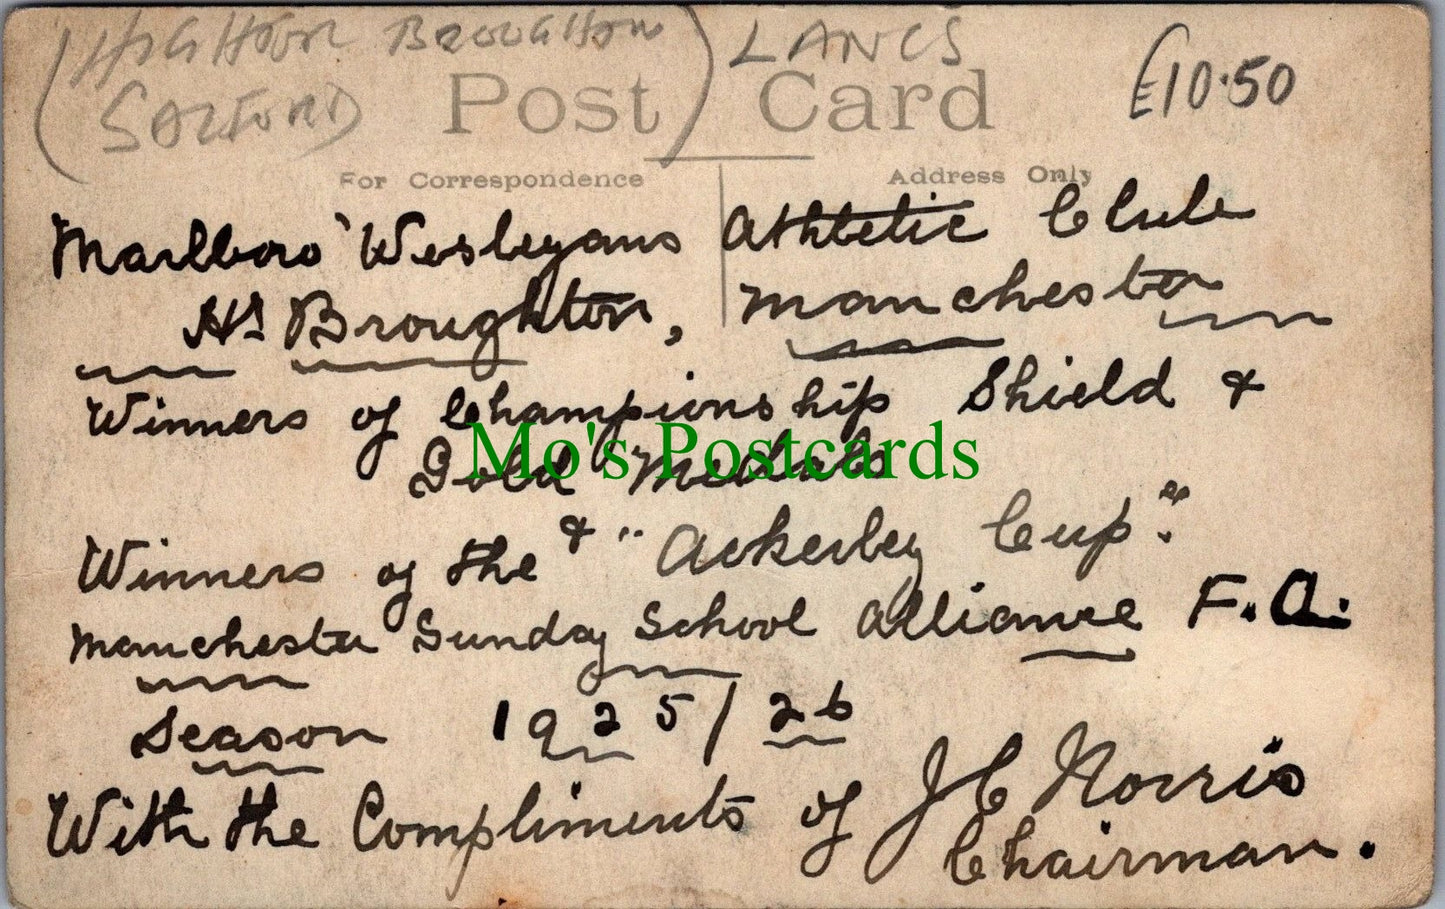 (HIGHTOWN BROUGHTON) LANCS £10.50
SALFORD
Post Card
For Correspondence Address Only
Marlboro' Wesleyans Athletic Club
Hr Broughton, Manchester
Winners of Championship Shield &
Gold Medals
Mo's Postcards
& 
Winners of the "Ackerley Cup".
Manchester Sunday School Alliance F.A.
Season 1925/26
With the Compliments of J C Norris
Chairman.